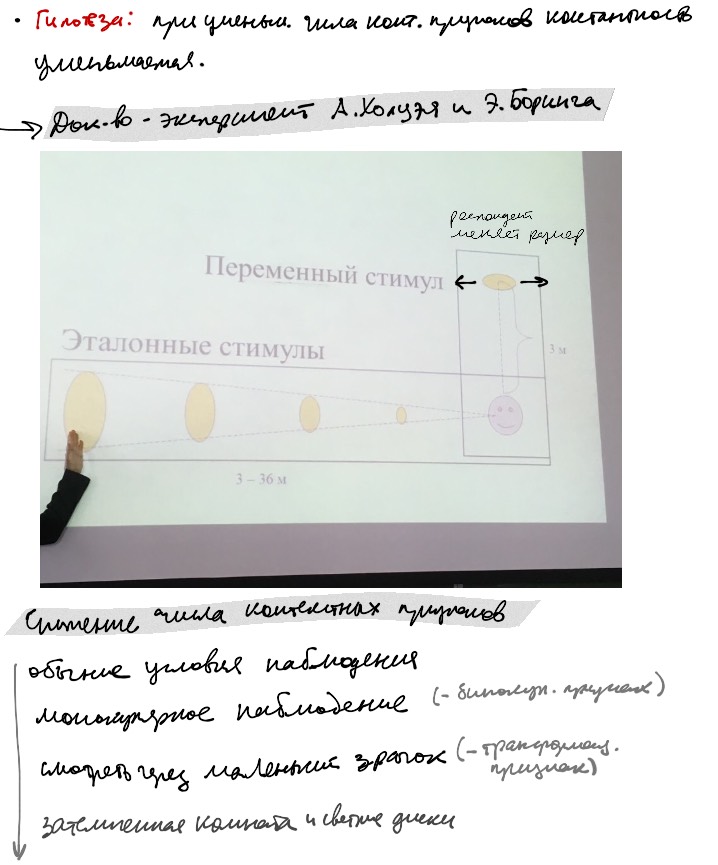 • Гипотеза: при уменьш. числа конт. признаков константность
уменьшается.
→ Док-во - эксперимент А.Холуэя и Э.Боринга
респондент
меняет размер
Переменный стимул
3 м
Эталонные стимулы
3 – 36 м
Снижение числа контекстных признаков
обычные условия наблюдения
монокулярное наблюдение (- бинокул. признак)
смотреть через маленький зрачок (- трансформац.
признак)
затемненная комната и светлые диски